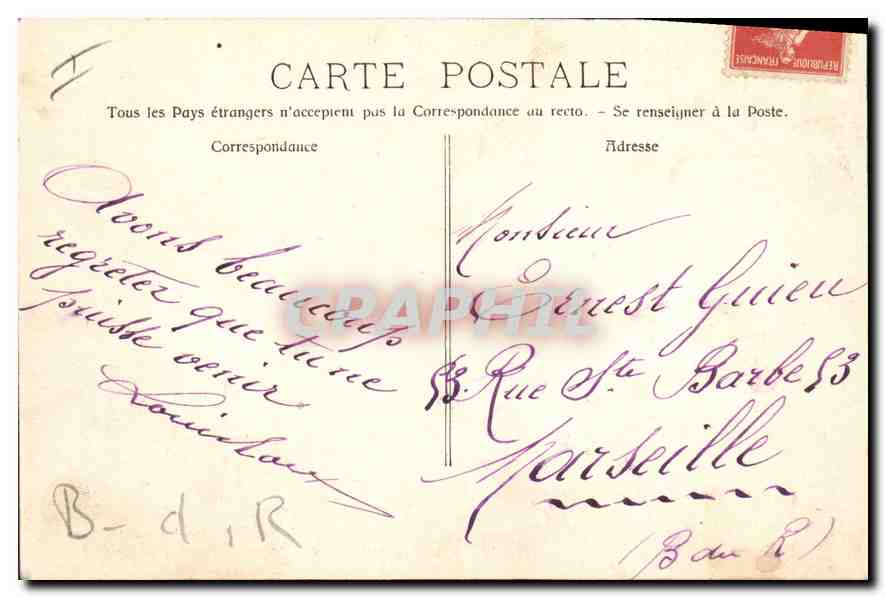 CARTE POSTALE
Tous les Pays étrangers n'acceptent pas la Correspondance au recto. - Se renseigner à la Poste.
Correspondance
Avons beaucoup
regreter que tu ne
puisse venir
Adresse
Monsieur
Ernest Guieu
53. Rue Ste Barbe 53
Marseille
(B du R)
B-d,R
REPUBLIQUE FRANÇAISE
CPAPHIL